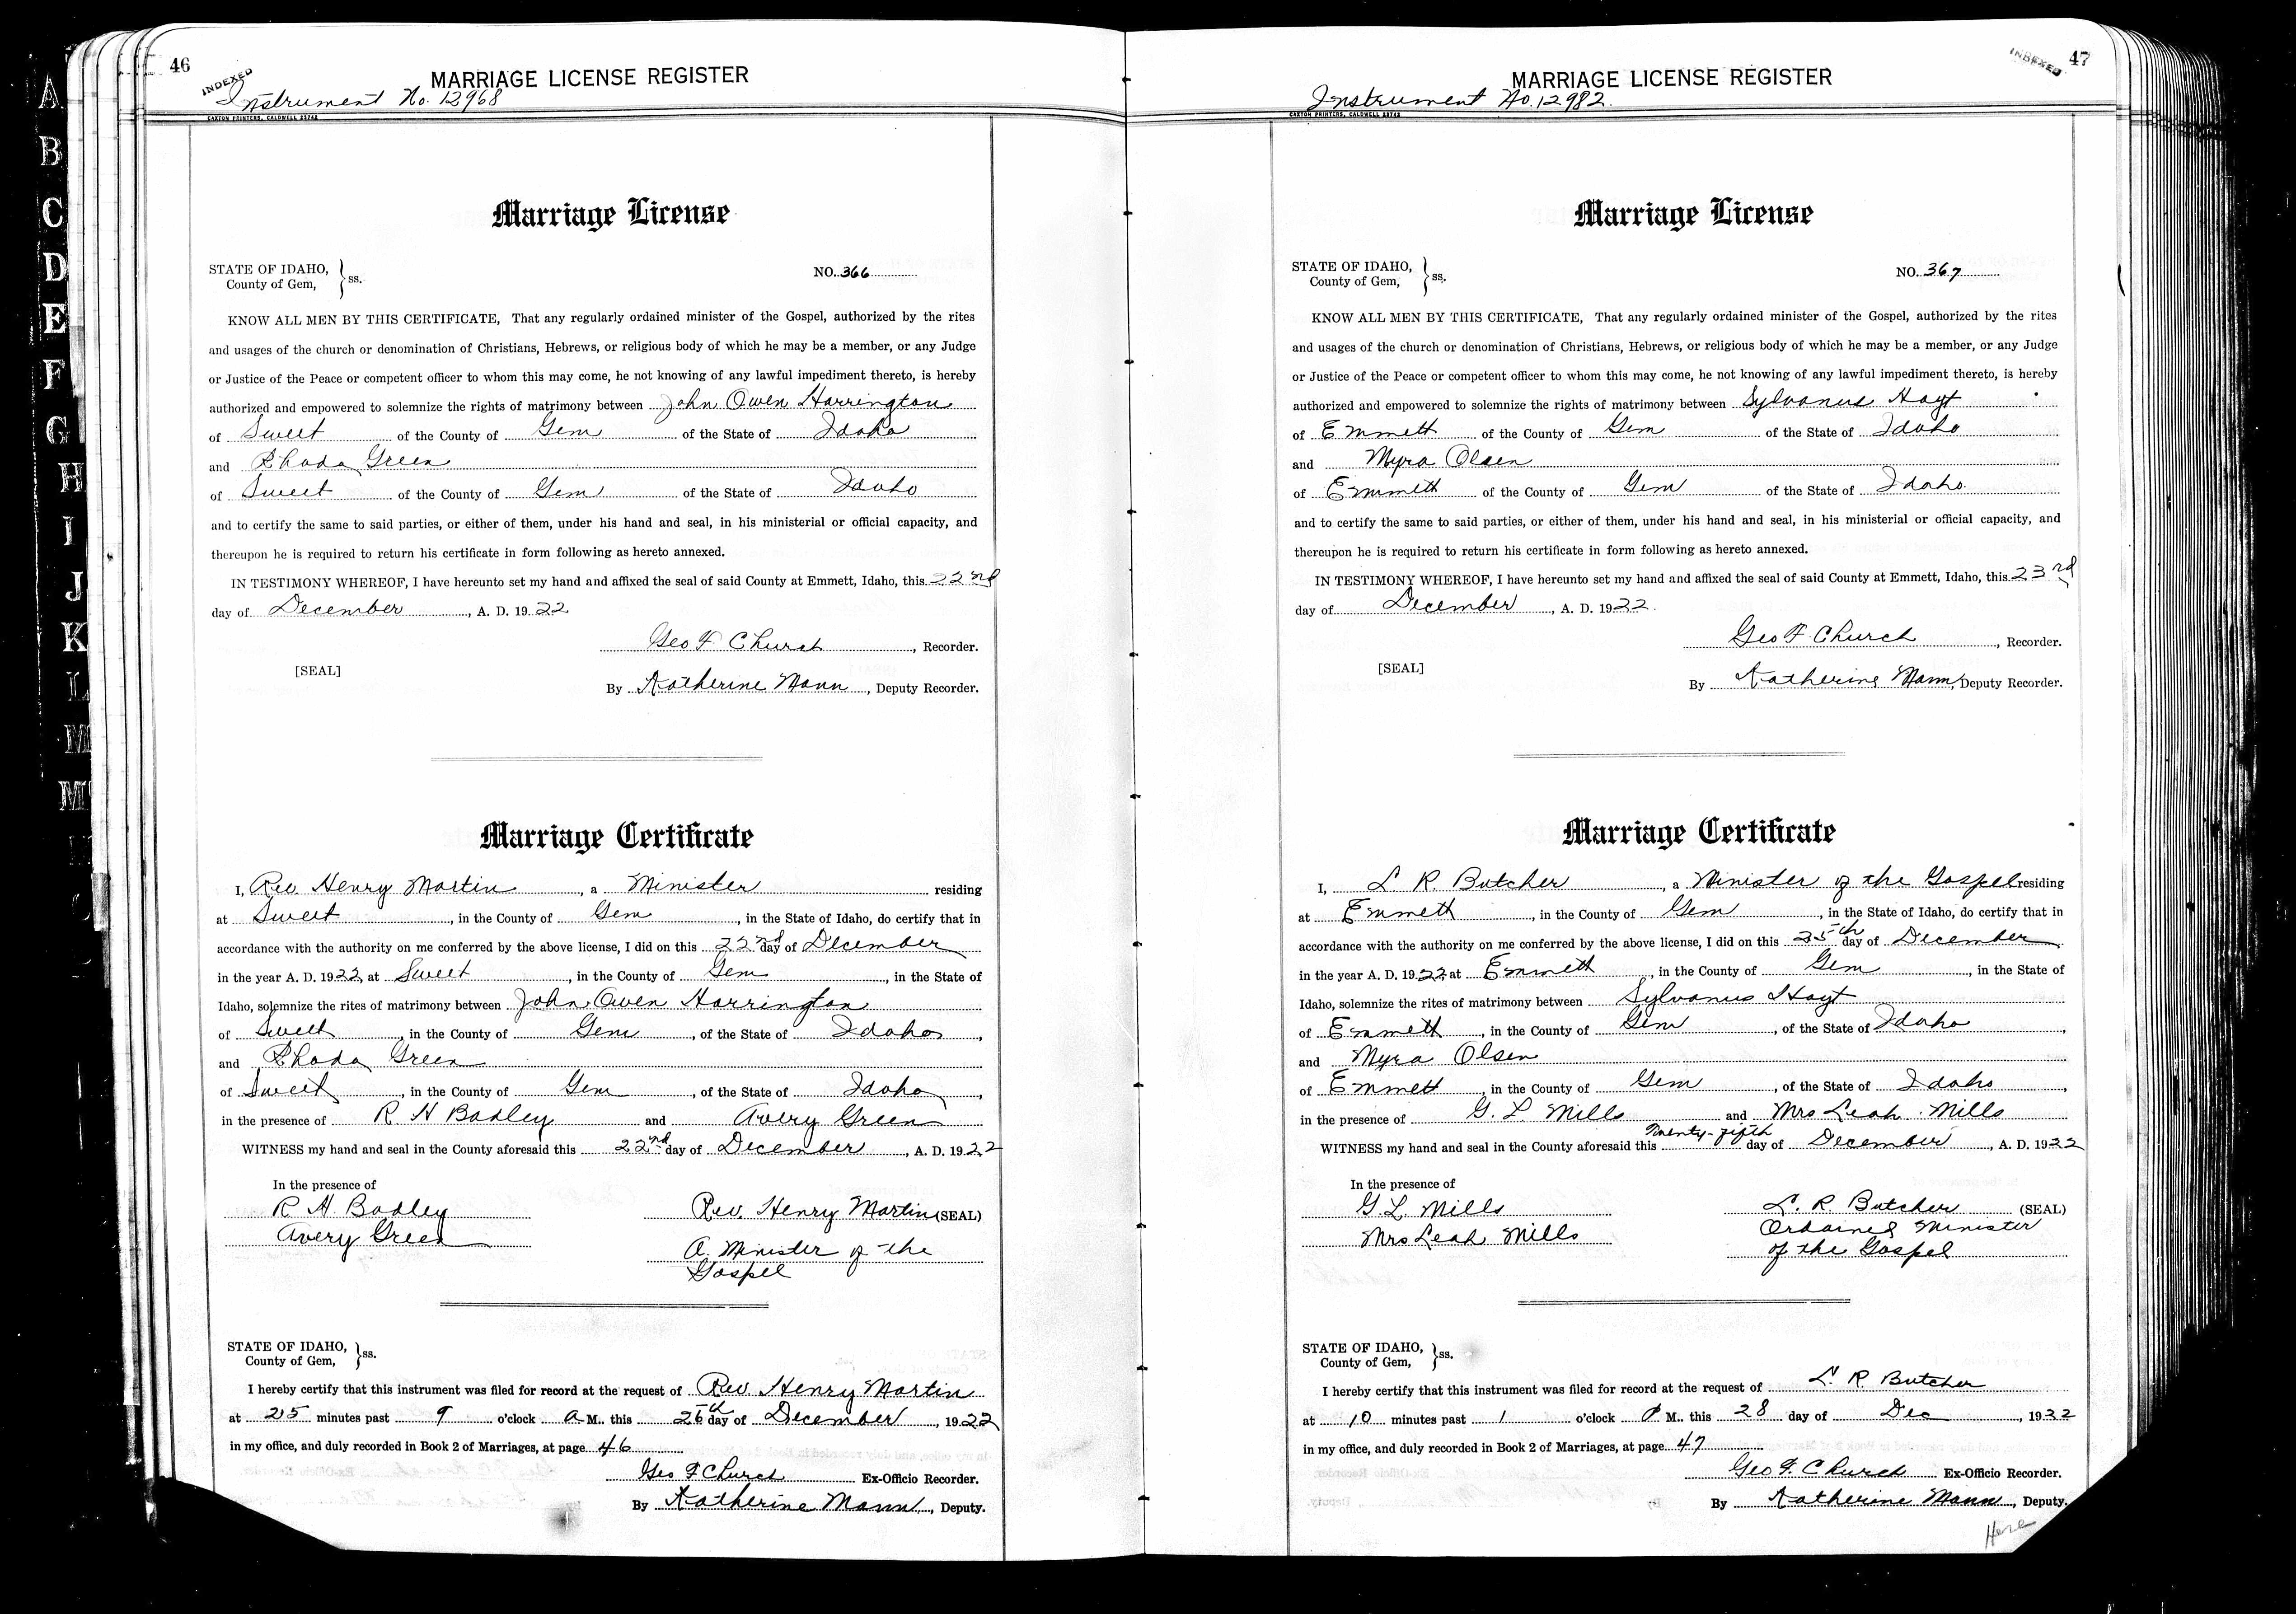 A
B
C
D
E
F
G
H
I
J
K
L
M
M
46
INDEXED
MARRIAGE LICENSE REGISTER
Instrument No. 12968
CAXTON PRINTERS, CALDWELL 23742
Marriage License
STATE OF IDAHO,
County of Gem, } ss.
NO. 366
KNOW ALL MEN BY THIS CERTIFICATE, That any regularly ordained minister of the Gospel, authorized by the rites
and usages of the church or denomination of Christians, Hebrews, or religious body of which he may be a member, or any Judge
or Justice of the Peace or competent officer to whom this may come, he not knowing of any lawful impediment thereto, is hereby
authorized and empowered to solemnize the rights of matrimony between John Owen Harrington
of Sweet of the County of Gem of the State of Idaho
and Rhoda Green
of Sweet of the County of Gem of the State of Idaho
and to certify the same to said parties, or either of them, under his hand and seal, in his ministerial or official capacity, and
thereupon he is required to return his certificate in form following as hereto annexed.
IN TESTIMONY WHEREOF, I have hereunto set my hand and affixed the seal of said County at Emmett, Idaho, this 22nd
day of December, A. D. 1922
Geo F Church, Recorder.
[SEAL]
By Katherine Mann, Deputy Recorder.
Marriage Certificate
I, Rev. Henry Martin, a Minister residing
at Sweet, in the County of Gem, in the State of Idaho, do certify that in
accordance with the authority on me conferred by the above license, I did on this 22nd day of December
in the year A. D. 1922, at Sweet, in the County of Gem, in the State of
Idaho, solemnize the rites of matrimony between John Owen Harrington
of Sweet, in the County of Gem, of the State of Idaho,
and Rhoda Green
of Sweet, in the County of Gem, of the State of Idaho,
in the presence of R H Badley and Avery Green
WITNESS my hand and seal in the County aforesaid this 22nd day of December, A. D. 1922
In the presence of
R H Badley
Avery Green
Rev. Henry Martin (SEAL)
A. Minister of the
Gospel
STATE OF IDAHO,
County of Gem, } ss.
I hereby certify that this instrument was filed for record at the request of Rev. Henry Martin
at 25 minutes past 9 o'clock A M.. this 26th day of December, 1922
in my office, and duly recorded in Book 2 of Marriages, at page 46
Geo F Church Ex-Officio Recorder.
By Katherine Mann, Deputy.
INDEXED
47
MARRIAGE LICENSE REGISTER
Instrument No. 12982
CAXTON PRINTERS, CALDWELL 23742
Marriage License
STATE OF IDAHO,
County of Gem, } ss.
NO. 367
KNOW ALL MEN BY THIS CERTIFICATE, That any regularly ordained minister of the Gospel, authorized by the rites
and usages of the church or denomination of Christians, Hebrews, or religious body of which he may be a member, or any Judge
or Justice of the Peace or competent officer to whom this may come, he not knowing of any lawful impediment thereto, is hereby
authorized and empowered to solemnize the rights of matrimony between Sylvanus Hoyt
of Emmett of the County of Gem of the State of Idaho
and Myra Olsen
of Emmett of the County of Gem of the State of Idaho
and to certify the same to said parties, or either of them, under his hand and seal, in his ministerial or official capacity, and
thereupon he is required to return his certificate in form following as hereto annexed.
IN TESTIMONY WHEREOF, I have hereunto set my hand and affixed the seal of said County at Emmett, Idaho, this 23rd
day of December, A. D. 1922.
Geo F Church, Recorder.
[SEAL]
By Katherine Mann, Deputy Recorder.
Marriage Certificate
I, L R. Butcher, a Minister of the Gospel residing
at Emmett, in the County of Gem, in the State of Idaho, do certify that in
accordance with the authority on me conferred by the above license, I did on this 25th day of December
in the year A. D. 1922 at Emmett, in the County of Gem, in the State of
Idaho, solemnize the rites of matrimony between Sylvanus Hoyt
of Emmett, in the County of Gem, of the State of Idaho,
and Myra Olsen
of Emmett, in the County of Gem, of the State of Idaho,
in the presence of G. L Mills and Mrs Leah Mills
WITNESS my hand and seal in the County aforesaid this Twenty-fifth day of December, A. D. 1922
In the presence of
G. L Mills
Mrs Leah Mills
L. R. Butcher (SEAL)
Ordained Minister
of the Gospel
STATE OF IDAHO,
County of Gem, } ss.
I hereby certify that this instrument was filed for record at the request of L. R. Butcher
at 10 minutes past 1 o'clock P M.. this 28 day of Dec, 1922
in my office, and duly recorded in Book 2 of Marriages, at page 47
Geo F. Church Ex-Officio Recorder.
By Katherine Mann, Deputy.
Here